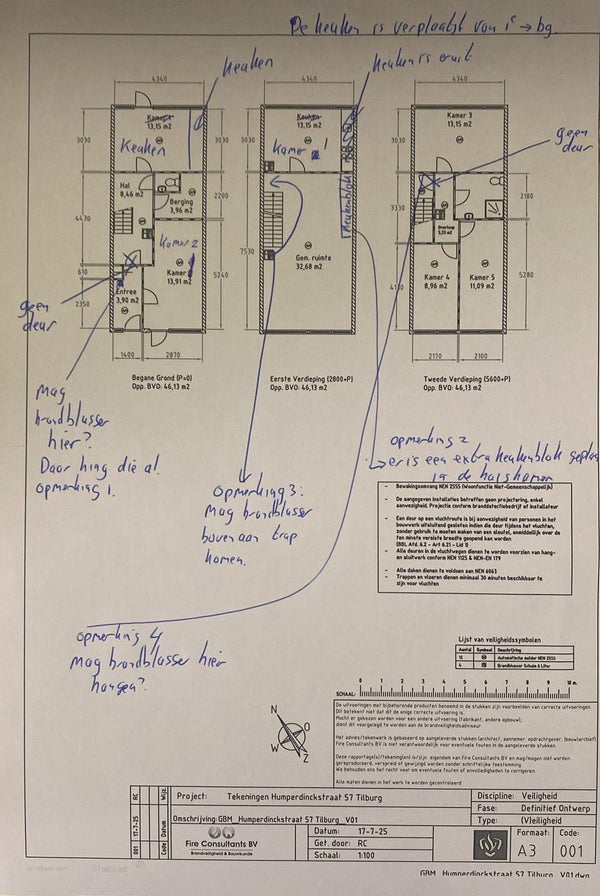 De keuken is verplaatst van 1e → bg.
keuken
keuken is eruit
4340
4340
4340
Kamer
13,15 m2
Keuken
Keuken
13,15 m2
Kamer 1
Kamer 3
13,15 m2
geen
deur
3030
3030
3030
3030
Hal
8,46 m2
Berging
3,96 m2
2200
Keukenblok
2180
3330
Overloop
4430
Kamer 2
Kamer
13,91 m2
7530
Gem. ruimte
32,68 m2
610
5240
Kamer 4
8,96 m2
Kamer 5
11,09 m2
5280
Entree
3,90 m2
2350
geen
deur
1400
2870
2170
2100
Begane Grond (P=0)
Opp. BVO: 46,13 m2
Eerste Verdieping (2800+P)
Opp. BVO: 46,13 m2
Tweede Verdieping (5600+P)
Opp. BVO: 46,13 m2
Mag
brandblusser
hier?
Daar hing die al.
opmerking 1.
opmerking 2
er is een extra keukenblok geplaa
in de huiskamer
Opmerking 3:
Mag brandblusser
boven aan trap
komen.
- Bewakingsomvang NEN 2555 (Woonfunctie Niet-Gemeenschappelijk)
- De aangegeven installaties betreffen geen projectering, enkel
aanwezigheid. Projectie conform branddetectiebedrijf of installateur
- Een deur op een vluchtroute is bij aanwezigheid van personen in het
bouwwerk uitsluitend gesloten indien die deur tijdens het vluchten,
zonder gebruik te moeten maken van een sleutel, onmiddellijk over de
ten minste vereiste breedte geopend kan worden
(BBL Afd. 6.2 - Art 6.21 - Lid 1)
- Alle deuren in de vluchtwegen dienen te worden voorzien van hang-
en sluitwerk conform NEN 1125 & NEN-EN 179
- Alle daken dienen te voldoen aan NEN 6063
- Trappen en vloeren dienen minimaal 30 minuten beschikbaar te
zijn voor vluchten
opmerking 4
Mag brandblusser hier
hangen?
Lijst van veiligheidssymbolen
Aantal Symbool Omschrijving
12 Automatische melder NEN 2555
4 Brandblusser Schuim 6 Liter
SCHAAL:
0 1 2 3 4 5 6 7 8 9 10 m.
N
O
W
Z
De uitvoeringen met bijbehorende producten benoemd in de stukken zijn voorbeelden van correcte uitvoeringen.
Dit betekent niet dat dit de enige correcte uitvoering is.
Mocht er gekozen worden voor een andere uitvoering (fabrikant, andere opbouw),
dient dit voorgelegd te worden aan de brandveiligheidsadviseur.
Het advies/tekenwerk is gebaseerd op aangeleverde stukken (architect, aannemer, opdrachtgever, (bouw)archief).
Fire Consultants BV is niet verantwoordelijk voor eventuele fouten in de aangeleverde stukken.
Deze rapportage(s)/tekening(en) is/zijn eigendom van Fire Consultants BV en mag/mogen niet worden
gereproduceerd, verspreid of gewijzigd worden zonder schriftelijke toestemming.
We behouden ons het recht voor om eventuele fouten of onvolledigheden te corrigeren.
Alle maten dienen in het werk te worden gecontroleerd
001 17-7-25 RC
Code Datum Wijz.
Project: Tekeningen Humperdinckstraat 57 Tilburg
Omschrijving: GBM_Humperdinckstraat 57 Tilburg_V01
Fire Consultants BV
Brandveiligheid & Bouwkunde
Datum: 17-7-25
Get. door: RC
Schaal: 1:100
Discipline: Veiligheid
Fase: Definitief Ontwerp
Type: (V)eiligheid
Formaat: A3
Code: 001
GBM_Humperdinckstraat 57 Tilburg_V01.dwg